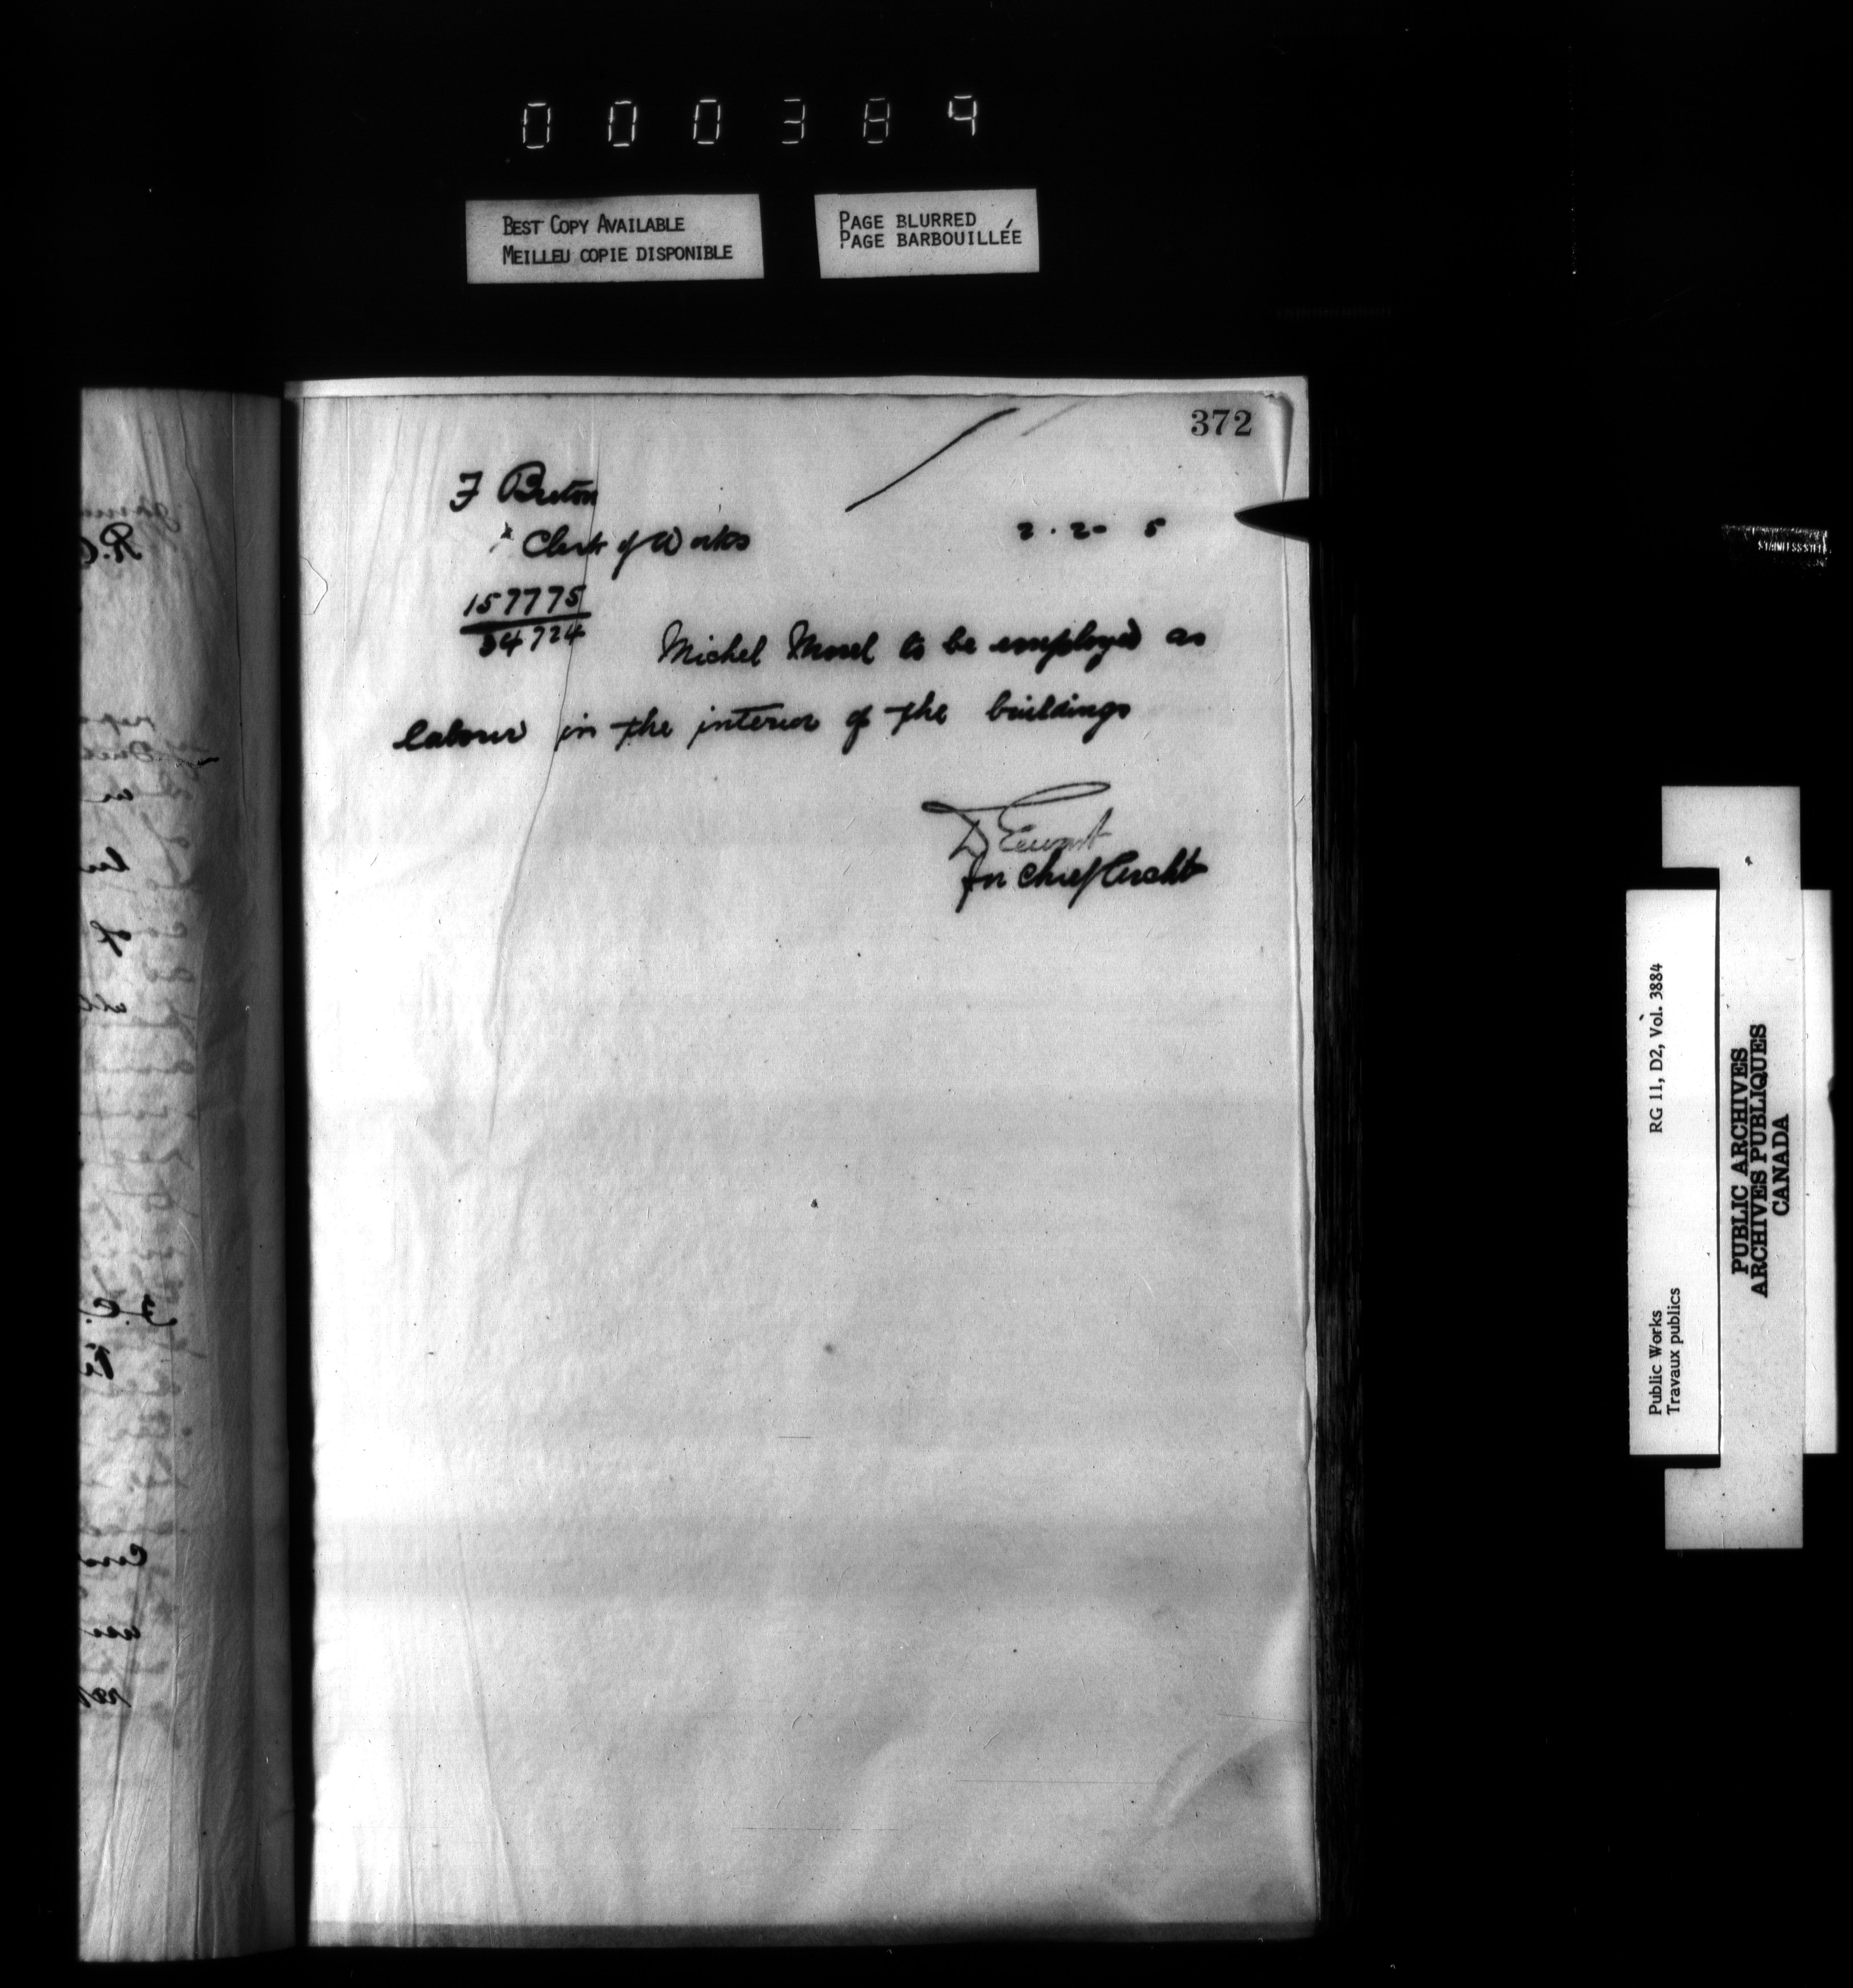 000389
BEST COPY AVAILABLE
MEILLEU COPIE DISPONIBLE
PAGE BLURRED
PAGE BARBOUILLÉE
372
F Breton
Clerk of Works
2.2- 5
157775
54724
Michel Morel to be employed as
labour in the interior of the buildings
D Ewart
for Chief Archt
STAINLESS STEEL
RG 11, D2, Vol. 3884
Public Works
Travaux publics
PUBLIC ARCHIVES
ARCHIVES PUBLIQUES
CANADA